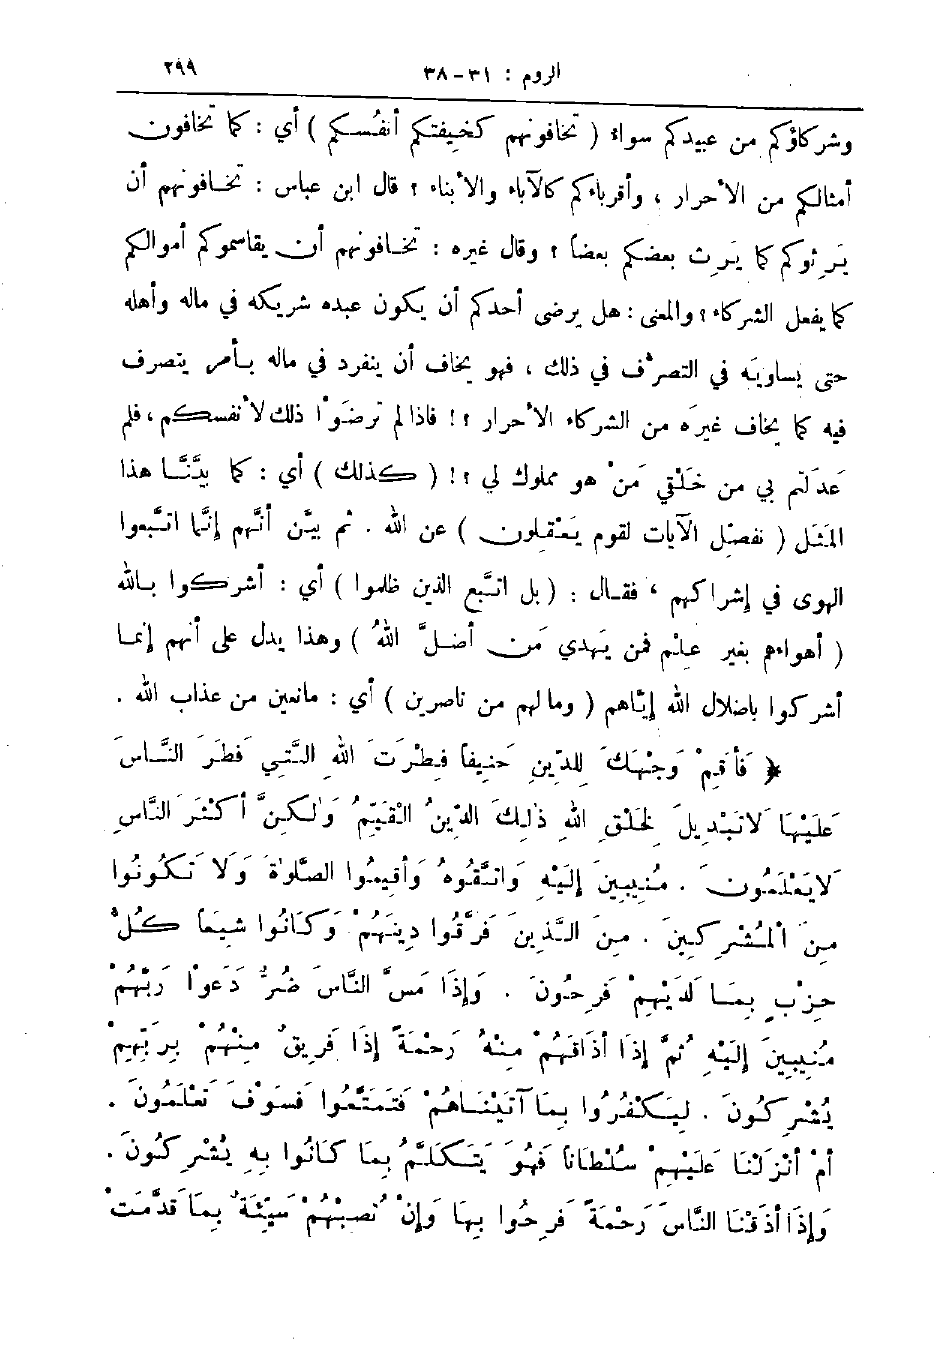 الروم : ٣١ - ٣٨ ٢٩٩
وشركاؤكم من عبيدكم سواءٌ ( تخافونهم كخِيفتكم أنفُسكم ) أي : كما تخافون
أمثالكم من الأحرار ، وأقرباءكم كالآباء والأبناء ؟ قال ابن عباس : تخافونهم أن
يَرِثوكم كما يَرِث بعضكم بعضاً ؟ وقال غيره : تخافونهم أن يقاسموكم أموالكم
كما يفعل الشركاء ؟ والمعنى : هل يرضى أحدكم أن يكون عبده شريكه في ماله وأهله
حتى يساويَه في التصرُّف في ذلك ، فهو يخاف أن ينفرد في ماله بأمر يتصرف
فيه كما يخاف غيرَه من الشركاء الأحرار ؟! فاذا لم ترضَوْا ذلك لأنفسكم ، فلم
عَدَلتم بي من خَلْقي مَنْ هو مملوك لي ؟! ( كذلك ) أي : كما بيَّنَّا هذا
المَثَل ( نفصِّل الآيات لقوم يَعْقِلون ) عن الله . ثم بيَّن أنَّهم إنَّما اتَّبعوا
الهوى في إشراكهم ، فقال : ( بل اتبَّع الذين ظلموا ) أي : أشركوا بالله
( أهواءهم بغير عِلْم فمن يَهدي مَن أضلَّ اللهُ ) وهذا يدل على أنهم إنما
أشركوا باضلال الله إيَّاهم ( وما لهم من ناصرين ) أي : مانعين من عذاب الله .
﴿ فَأَقِمْ وَجْهَكَ لِلدِّينِ حَنِيفاً فِطْرَتَ اللهِ الَّتِي فَطَرَ النَّاسَ
عَلَيْهَا لَا تَبْدِيلَ لِخَلْقِ اللهِ ذٰلِكَ الدِّينُ الْقَيِّمُ وَلٰكِنَّ أَكْثَرَ النَّاسِ
لَا يَعْلَمُونَ . مُنِيبِينَ إِلَيْهِ وَاتَّقُوهُ وَأَقِيمُوا الصَّلٰوةَ وَلَا تَكُونُوا
مِنَ الْمُشْرِكِينَ . مِنَ الَّذِينَ فَرَّقُوا دِينَهُمْ وَكَانُوا شِيَعاً كُلُّ
حِزْبٍ بِمَا لَدَيْهِمْ فَرِحُونَ . وَإِذَا مَسَّ النَّاسَ ضُرٌّ دَعَوْا رَبَّهُمْ
مُنِيبِينَ إِلَيْهِ ثُمَّ إِذَا أَذَاقَهُمْ مِنْهُ رَحْمَةً إِذَا فَرِيقٌ مِنْهُمْ بِرَبِّهِمْ
يُشْرِكُونَ . لِيَكْفُرُوا بِمَا آتَيْنَاهُمْ فَتَمَتَّعُوا فَسَوْفَ تَعْلَمُونَ .
أَمْ أَنْزَلْنَا عَلَيْهِمْ سُلْطَاناً فَهُوَ يَتَكَلَّمُ بِمَا كَانُوا بِهِ يُشْرِكُونَ .
وَإِذَا أَذَقْنَا النَّاسَ رَحْمَةً فَرِحُوا بِهَا وَإِنْ تُصِبْهُمْ سَيِّئَةٌ بِمَا قَدَّمَتْ